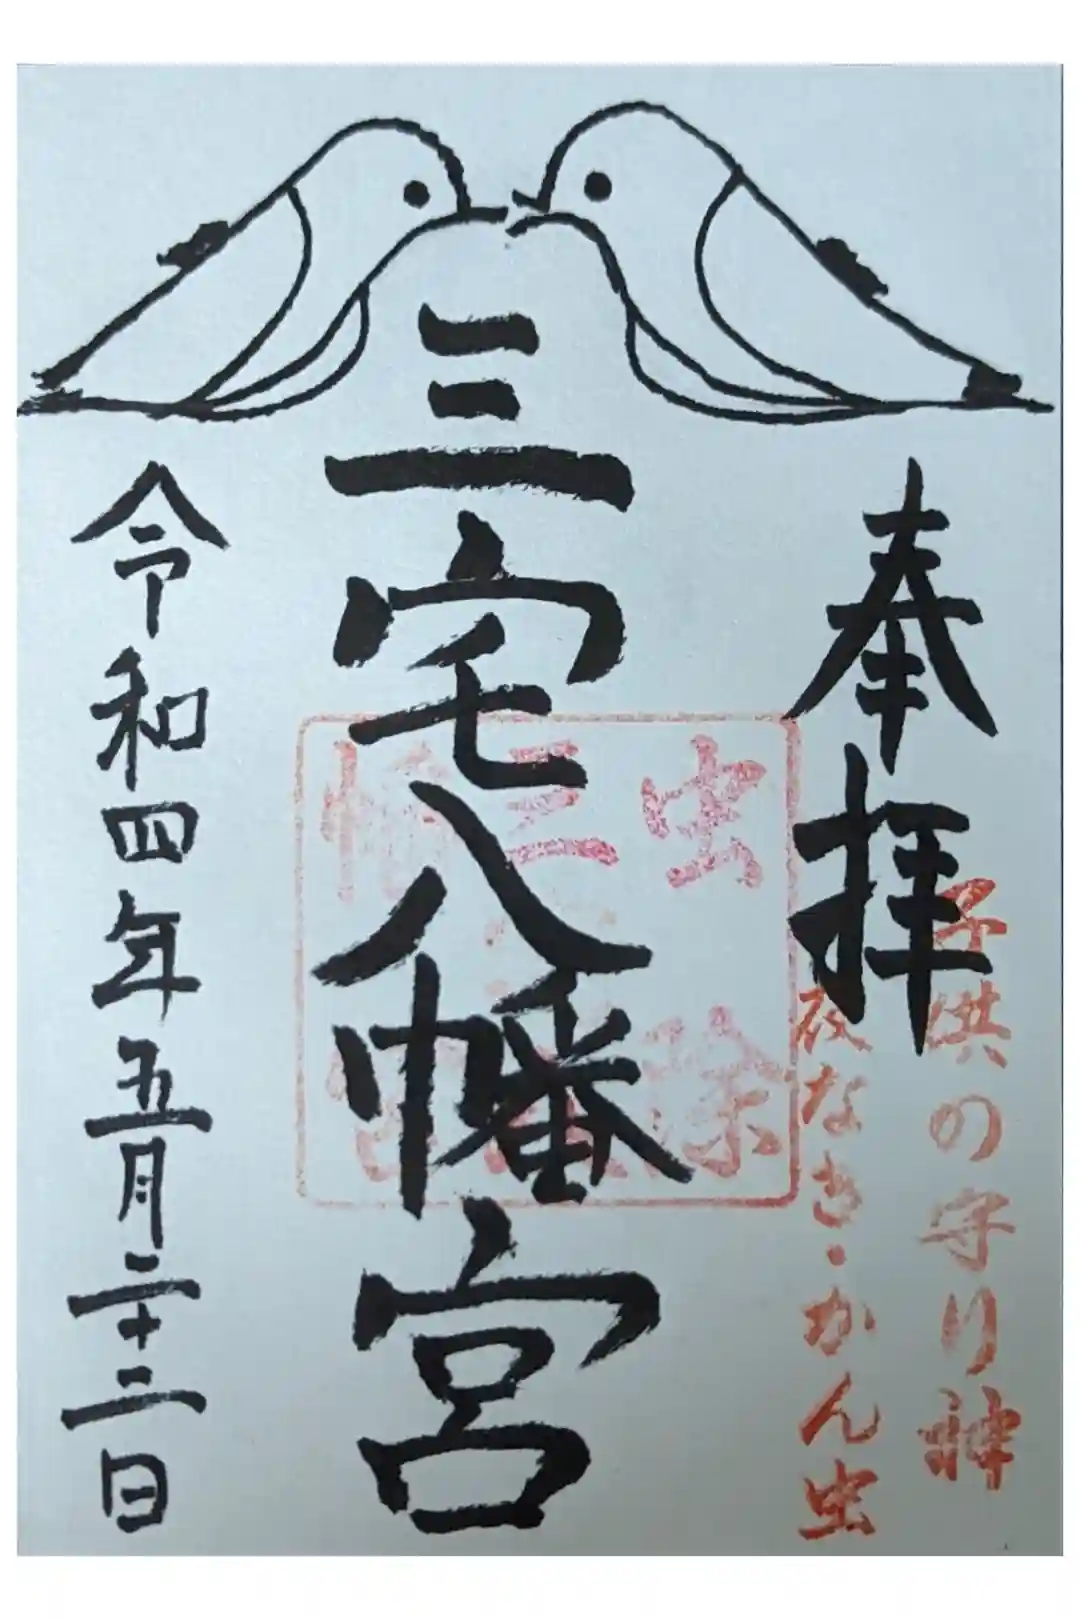 奉拝
子供の守り神
夜なき・かん虫
三宅八幡宮
虫
三
令和四年五月二十二日